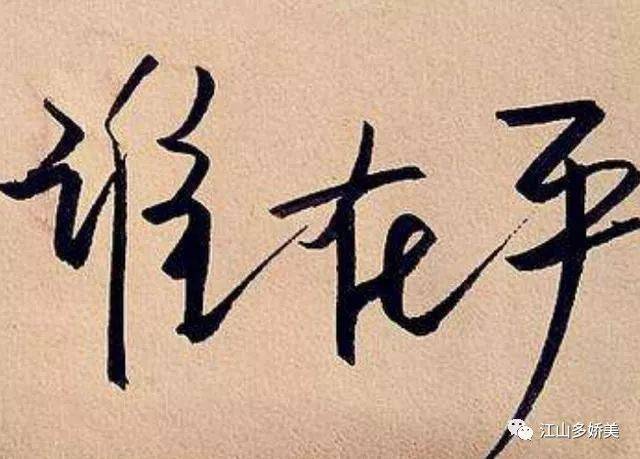 谁在乎
江山多娇美